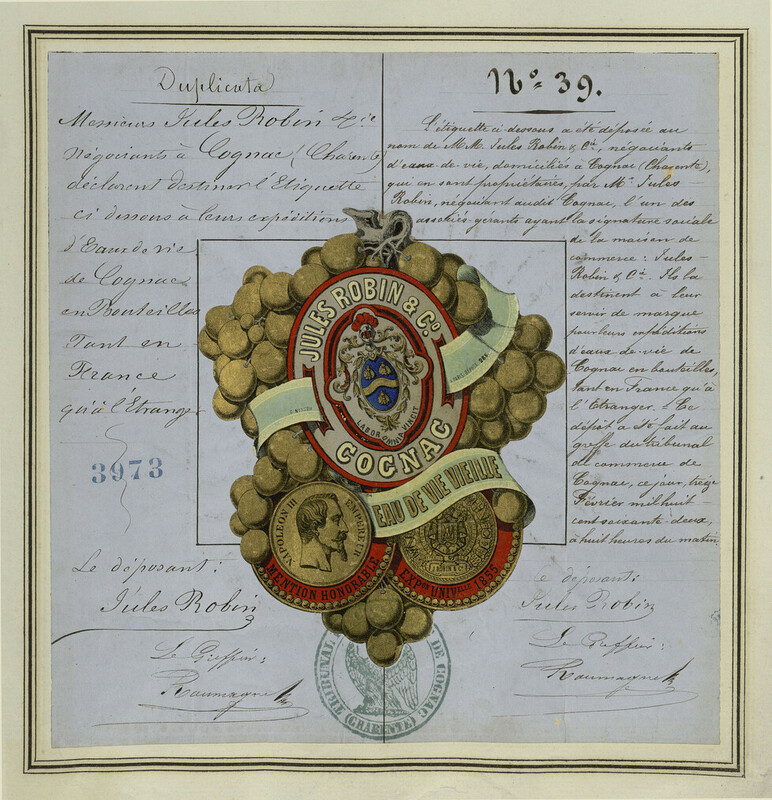 Duplicata
Messieurs Jules Robin & Cie
négociants à Cognac (Charente)
déclarent destiner l'Etiquette
ci dessous à leurs expéditions
d'Eaux de vie
de Cognac
en Bouteilles
Tant en
France
qu'à l'Etranger
3973
Le déposant:
Jules Robin
Le Greffier:
Roumagne
No. 39.
L'étiquette ci-dessous a été déposée au
nom de M.M. Jules Robin & Cie, négociants
d'eaux-de-vie, domiciliés à Cognac (Charente),
qui en sont propriétaires, par Mr Jules
Robin, négociant audit Cognac, l'un des
associés-gérants ayant la signature sociale
de la maison de
commerce: Jules
Robin & Cie. Ils la
destinent à leur
servir de marque
pour leurs expéditions
d'eaux-de-vie de
Cognac en bouteilles,
tant en France qu'à
l'Etranger. Ce
dépôt a été fait au
greffe du tribunal
de commerce de
Cognac, ce jour, treize
Février mil huit
cent soixante-deux,
à huit heures du matin.
déposant:
Jules Robin
Le Greffier:
Roumagne
JULES ROBIN & Co.
LABOR OMNIA VINCIT
COGNAC
EAU DE VIE VIEILLE
NAPOLEON III EMPEREUR
MENTION HONORABLE
J. ROBIN & Co
EXPon UNIVelle 1855
TRIBUNAL DE COGNAC
(CHARENTE)